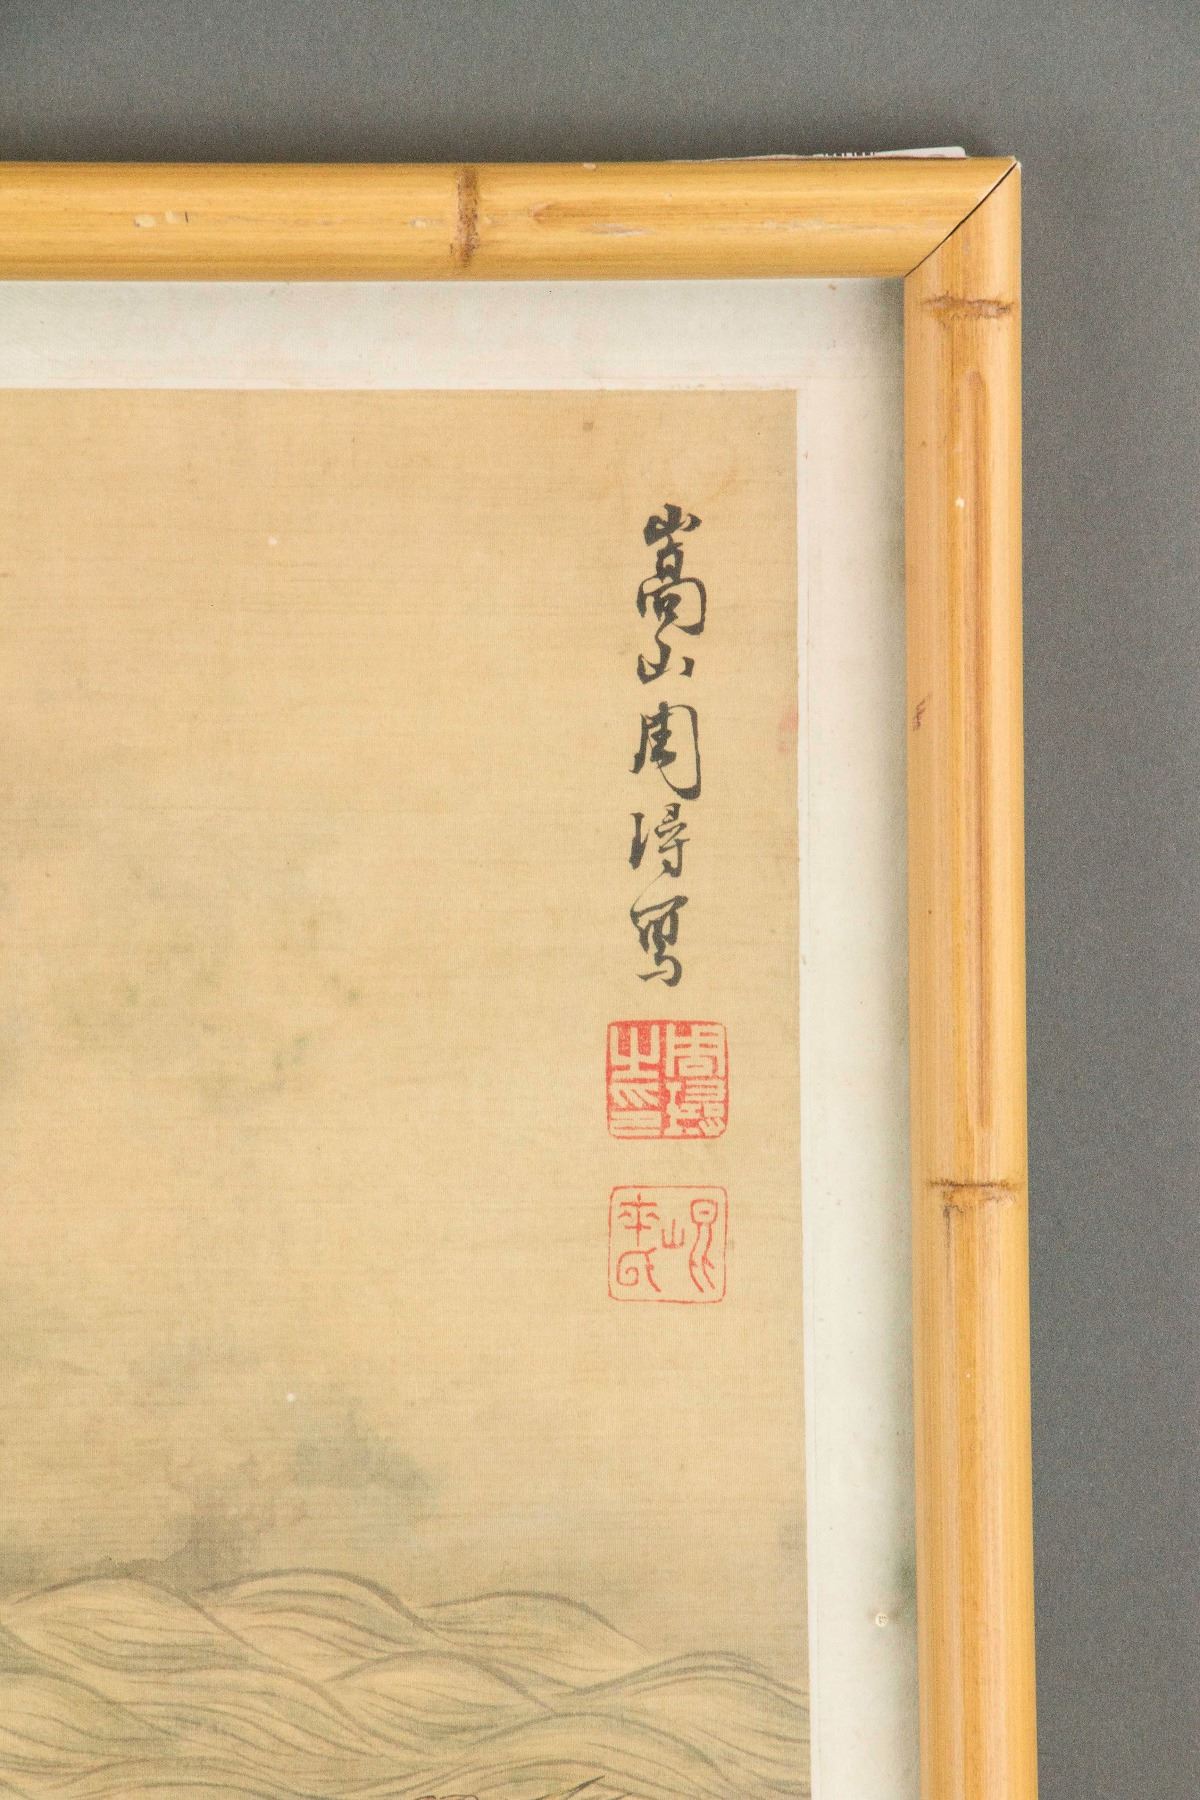 嵩山周璕寫
周璕之印
崐來氏